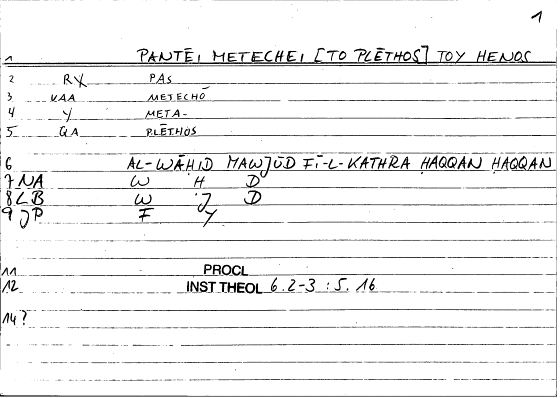 1
1 PANTĒI METECHEI [TO PLĒTHOS] TOY HENOS
2 RX PAS
3 VAA METECHŌ
4 Y META-
5 QA PLĒTHOS
6 AL-WĀḤID MAWJŪD FĪ-L-KATHRA ḤAQQAN ḤAQQAN
7 NA W H D
8 LB W J D
9 JP F Y
11 PROCL
12 INST THEOL 6.2-3 : 5.16
14?